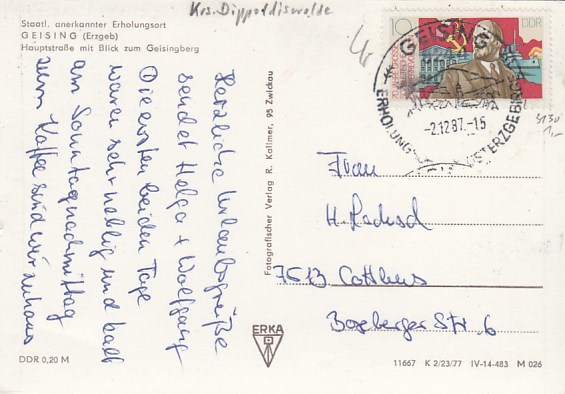 Krs. Dippoldiswalde
Staatl. anerkannter Erholungsort
GEISING (Erzgeb)
Hauptstraße mit Blick zum Geisingberg
Herzliche Urlaubsgrüße
sendet Helga + Wolfgang
Die ersten beiden Tage
waren sehr neblig und kalt
am Sonntagnachmittag
zum Kaffee sind wir zuhaus
DDR 0,20 M
Fotografischer Verlag R. Kallmer, 95 Zwickau
ERKA
10
DDR
GEISING
-2.12.87.-15
ERHOLUNGS
OSTERZGEBIRGE
Frau
H.
7513 Cottbus
Str. 6
11667 K 2/23/77 IV-14-483 M 026